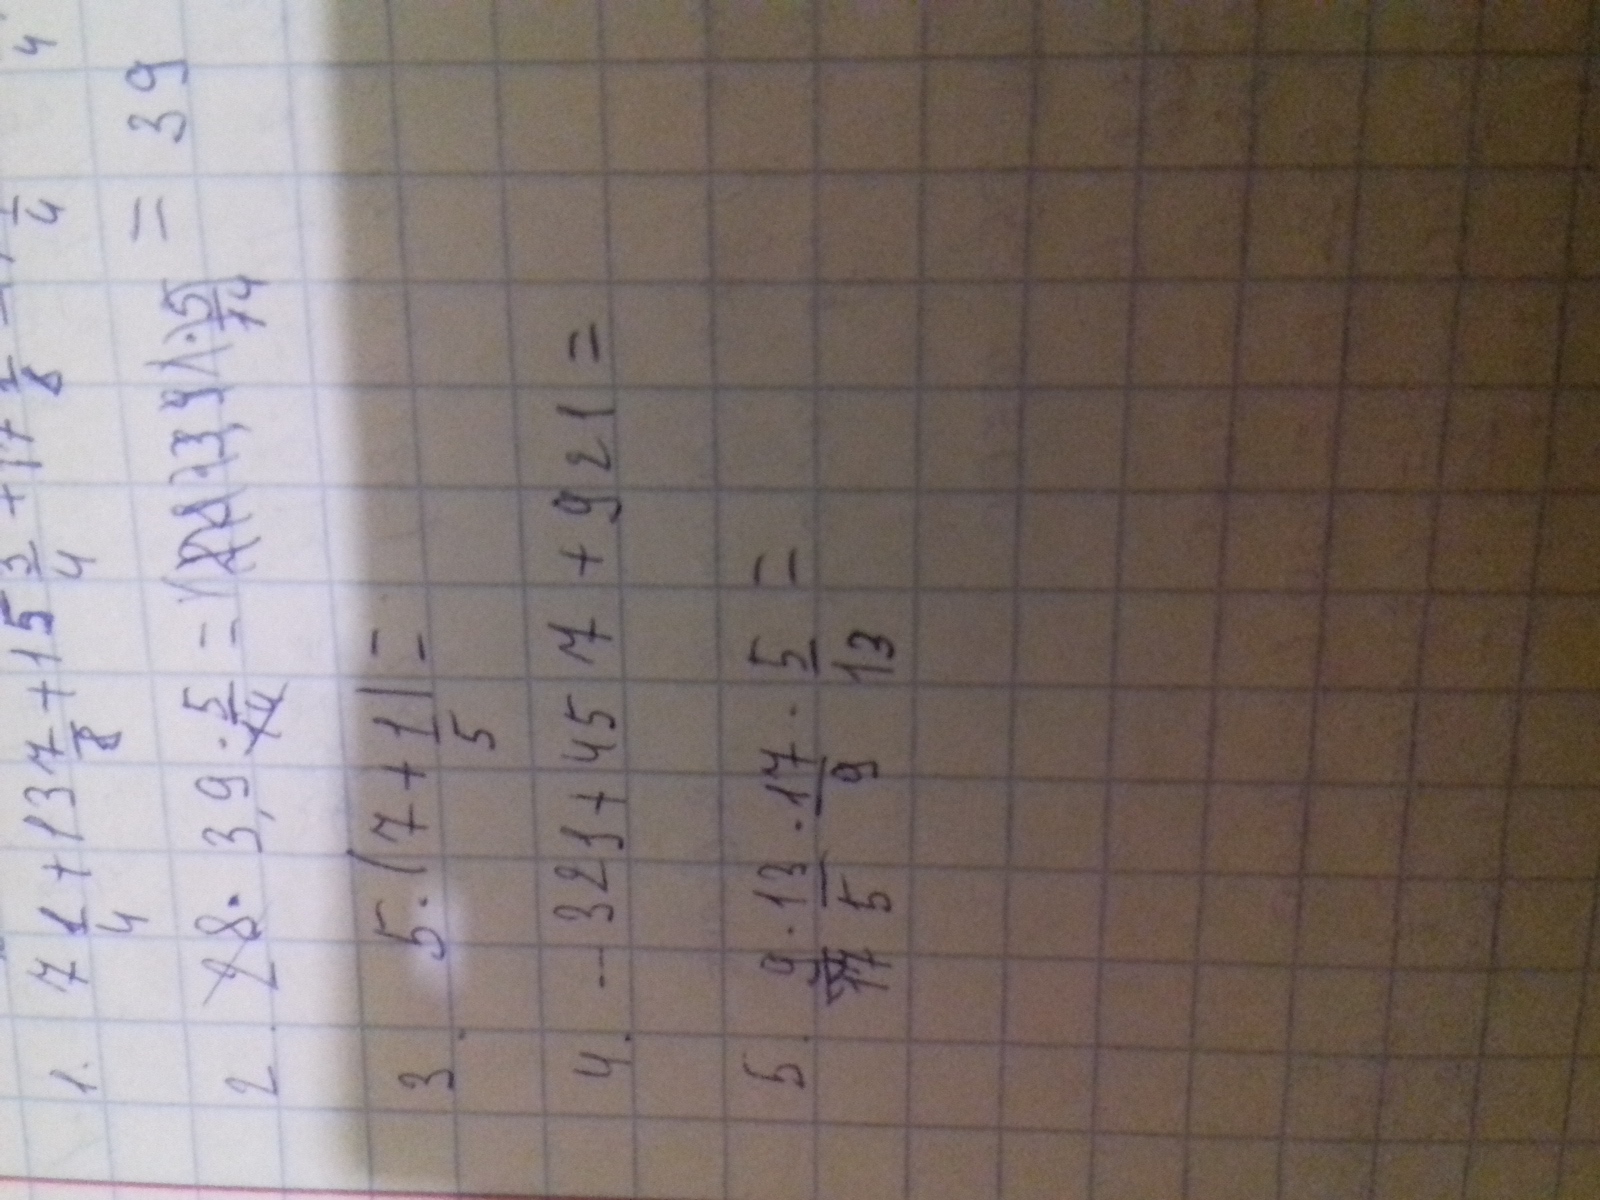 1. 7 1/4 + 13 7/8 + 15 3/4 + 17 1/8 =
2. 28 · 3,9 · 5/14 = = 39
3. 5 · (7 + 1/5) =
4. - 321 + 4517 + 921 =
5. 9/17 · 13/5 · 17/9 · 5/13 =